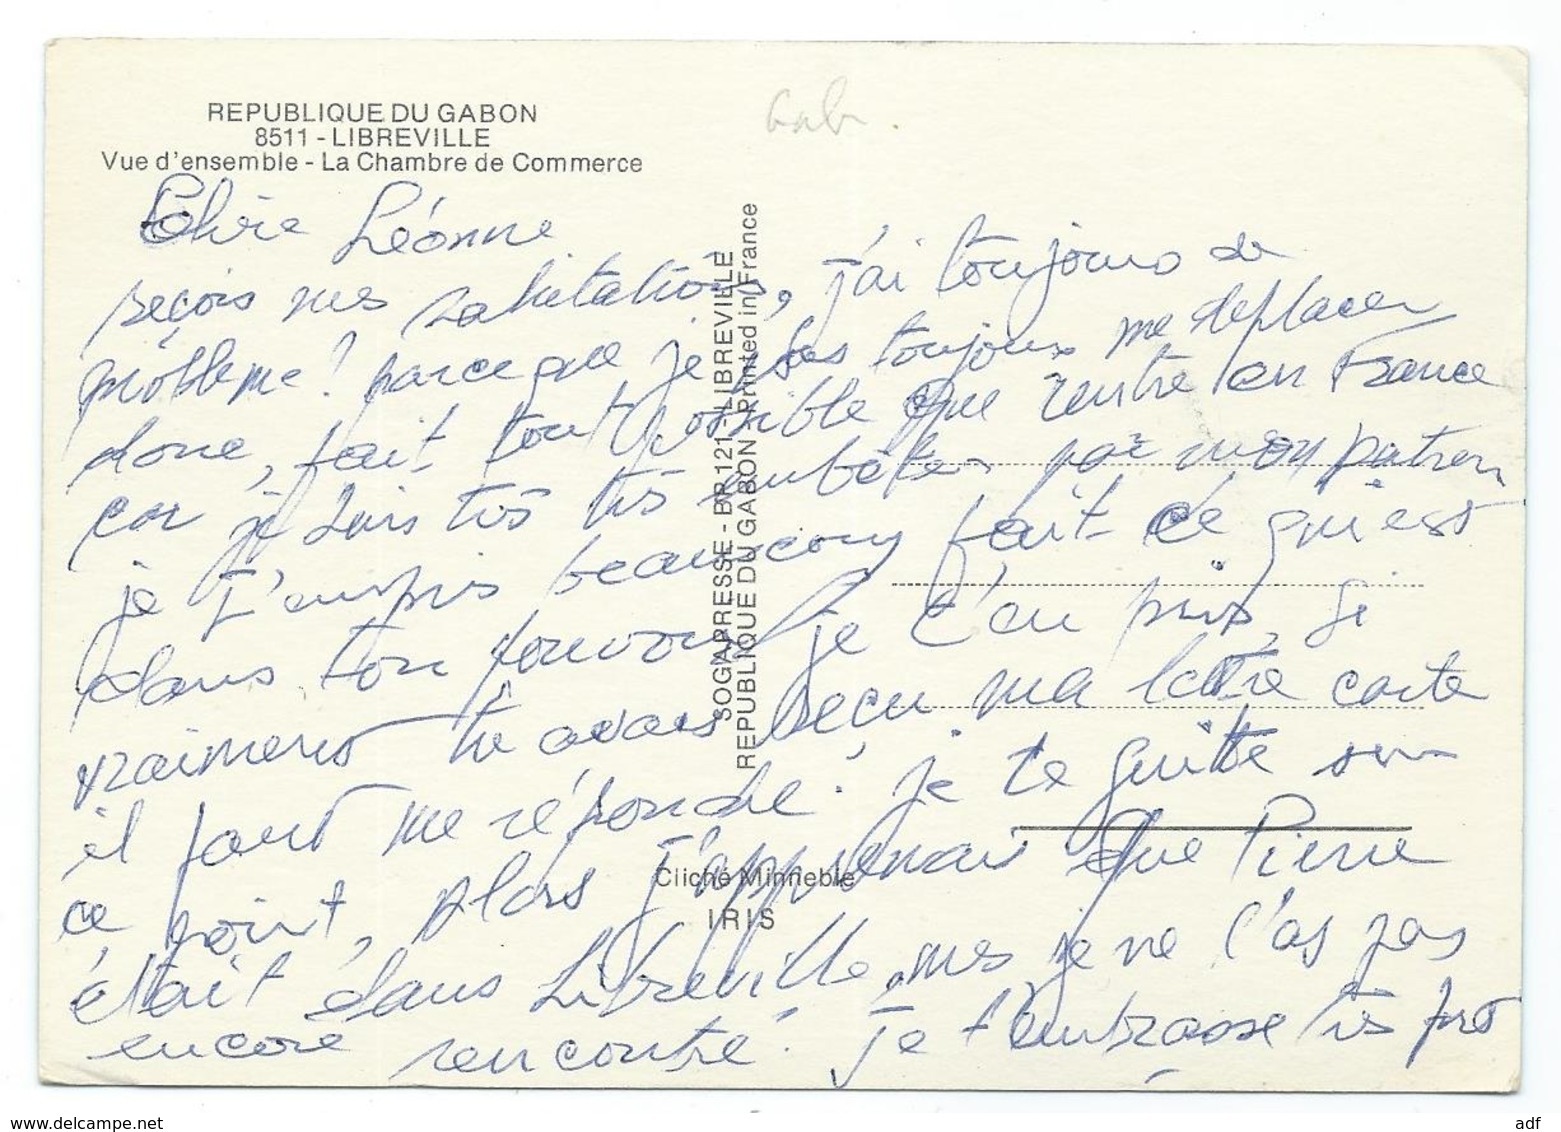 REPUBLIQUE DU GABON
8511 - LIBREVILLE
Vue d'ensemble - La Chambre de Commerce
Gab
Chère Léonne
reçois mes salutations, j'ai toujours de
problème! parce que je dois toujours me deplacer
donc, fait tout possible que rentre en France
car je suis très très embêter par mon patron
je t'en pris beaucoup fait ce qui est
dans ton pouvoir je t'en pris, si
vraiment tu avais reçu ma lettre carte
il faut me répondre. je te quitte sur
ce point, alors j'apprenais que Pierre
était dans Libreville, mes je ne l'as pas
encore rencontré! je t'embrasse très fort
SOGAPRESSE - BP 121 - LIBREVILLE
REPUBLIQUE DU GABON - Printed in France
Cliché Minneble
IRIS
www.delcampe.net
adf